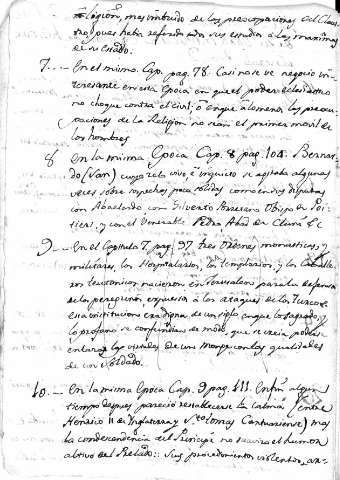 Religion, mas imbuido de las preocupaciones del Claus
tro, pues havia reformado sus estudios a las maximas
de su estado.
7.— En el mismo Cap. pag. 78. Casi no se ve negocio in-
teresante en esta Epoca en que el poder eclesiastico
no choque contra el civil; ô en que a lo menos las preocu-
paciones de la Religion no sean el primer movil de
los hombres
8 En la misma Epoca Cap. 8 pag. 104. Bernar-
do (San) cuyo zelo vivo, é inquieto se agitaba algunas
veces sobre sospechas poco solidas, como en sus disputas
con Abaelardo con Gilverto Porretano Obispo de Poi-
tiers, y con el Venerable Pedro Abad de Cluni &c
9— En el Capitulo 7 pag. 97 tres Ordenes monasticos, y
militares, los Hospitalarios, los templarios, y los Caballe
ros teutonicos nacieron en Jerusalem para la defensa
de los peregrinos expuestos â los ataques de los Turcos.
Esta institucion era digna de un siglo en que lo sagrado, y
lo profano se confundian de modo, que se creia poder
enlazar las virtudes de un Monge con las qualidades
de un Soldado.
10.— En la misma Epoca Cap. 9 pag. 111. En fin algun
tiempo despues pareció restablecerse la Calma (entre
Henrico II de Inglaterra y Sto tomas Cantuariense) mas
la condescendencia del Principe no suavizo el humor
altivo del Prelado:: Sus procedimientos violentos, ar-